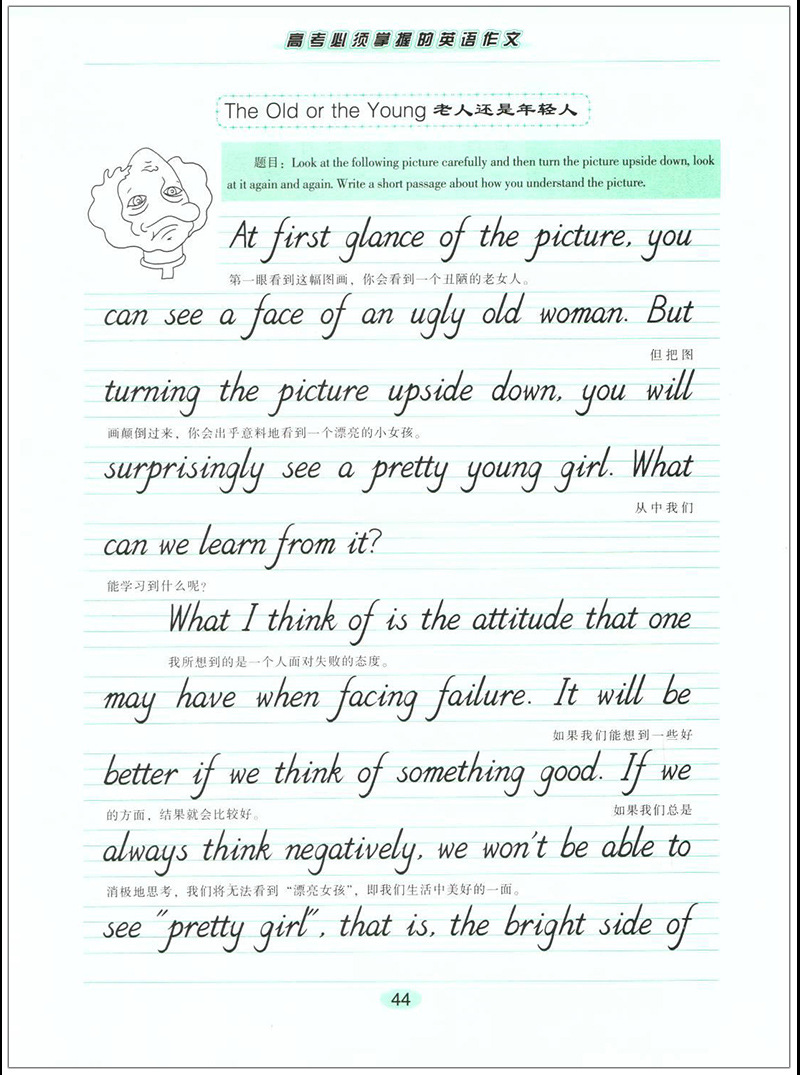 高考必须掌握的英语作文
The Old or the Young 老人还是年轻人
题目：Look at the following picture carefully and then turn the picture upside down, look
at it again and again. Write a short passage about how you understand the picture.
At first glance of the picture, you
第一眼看到这幅图画，你会看到一个丑陋的老女人。
can see a face of an ugly old woman. But
但把图
turning the picture upside down, you will
画颠倒过来，你会出乎意料地看到一个漂亮的小女孩。
surprisingly see a pretty young girl. What
从中我们
can we learn from it?
能学习到什么呢？
What I think of is the attitude that one
我所想到的是一个人面对失败的态度。
may have when facing failure. It will be
如果我们能想到一些好
better if we think of something good. If we
的方面，结果就会比较好。 如果我们总是
always think negatively, we won't be able to
消极地思考，我们将无法看到“漂亮女孩”，即我们生活中美好的一面。
see "pretty girl", that is, the bright side of
44